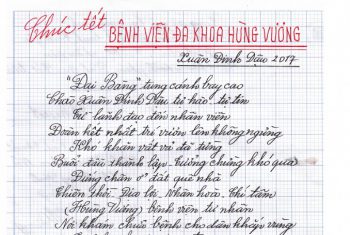 Chúc tết
BỆNH VIỆN ĐA KHOA HÙNG VƯƠNG
Xuân Đinh Dậu 2017
"Đại Bàng" tung cánh bay cao
Chào Xuân Đinh Dậu tự hào tự tin
Từ lãnh đạo đến nhân viên
Đoàn kết nhất trí vươn lên không ngừng
Khó khăn vất vả đã từng
Buổi đầu thành lập tưởng chừng khó qua
Đứng chân ở đất quê nhà
Thiên thời Địa lợi, Nhân hoà, Chí tiến
(Hùng Vương) bệnh viện tư nhân
Nơi khám chữa bệnh cho dân khắp vùng